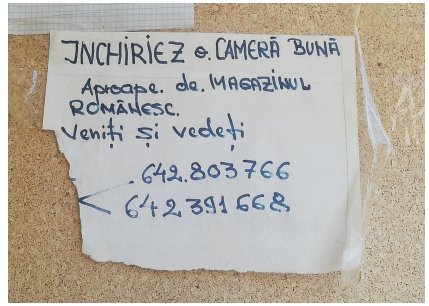 INCHIRIEZ o. CAMERĂ BUNĂ
Aproape. de. MAGAZINUL
ROMÂNESC.
Veniți și vedeți
.642.803766
642391668